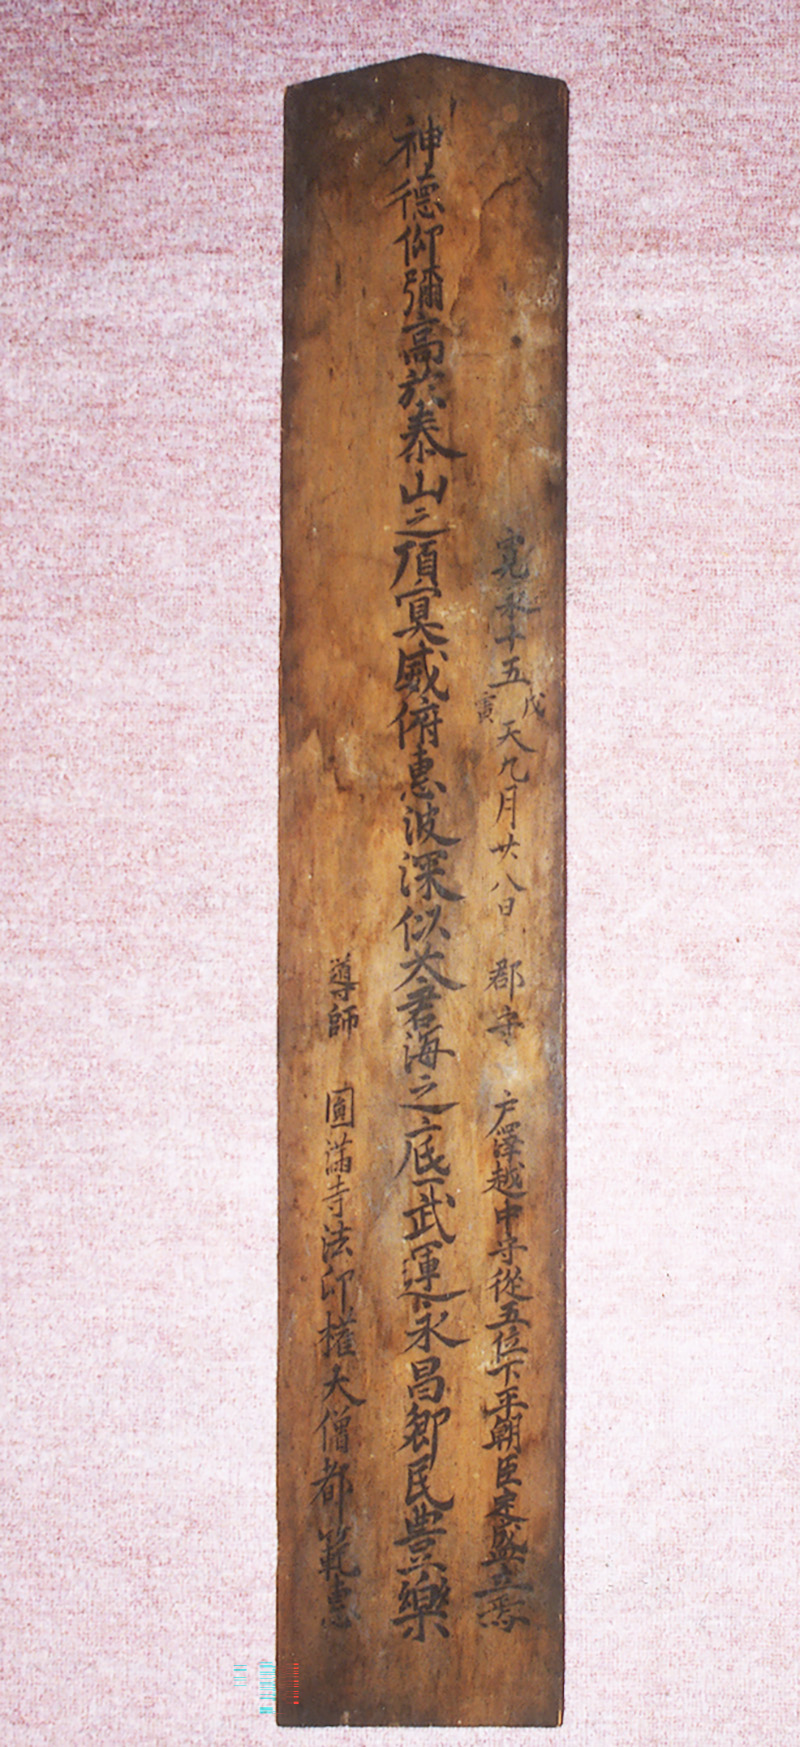 寛永十五戊寅天九月廿八日　郡守　戸澤越中守從五位下平朝臣定盛立焉
神德仰彌高於泰山之頂冥威俯惠波深似太君海之底武運永昌鄉民豊樂
導師　圓滿寺法印權大僧都範惠